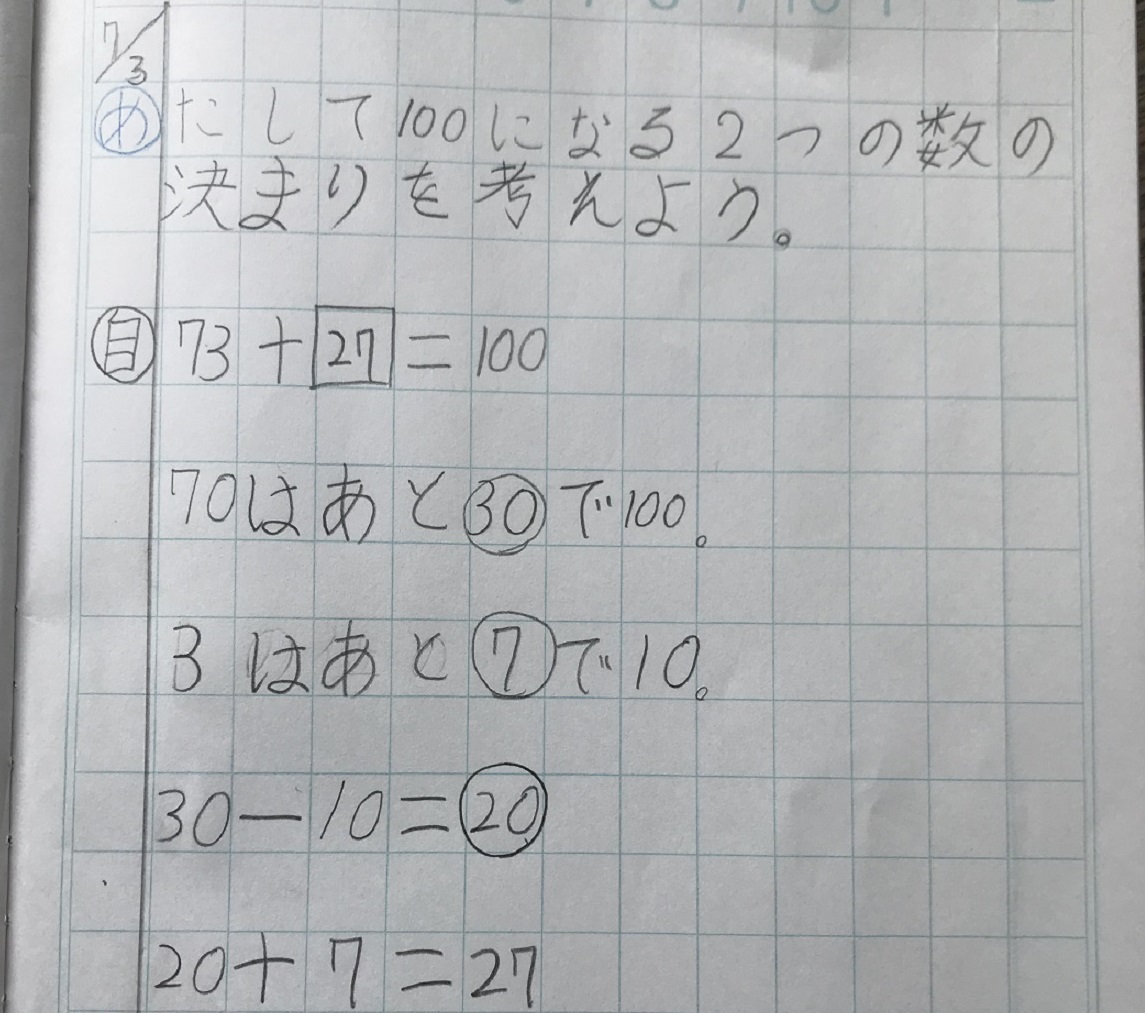 7/3
め たして100になる2つの数の
決まりを考えよう。
自 73+27=100
70はあと30で100。
3はあと7で10。
30-10=20
20+7=27